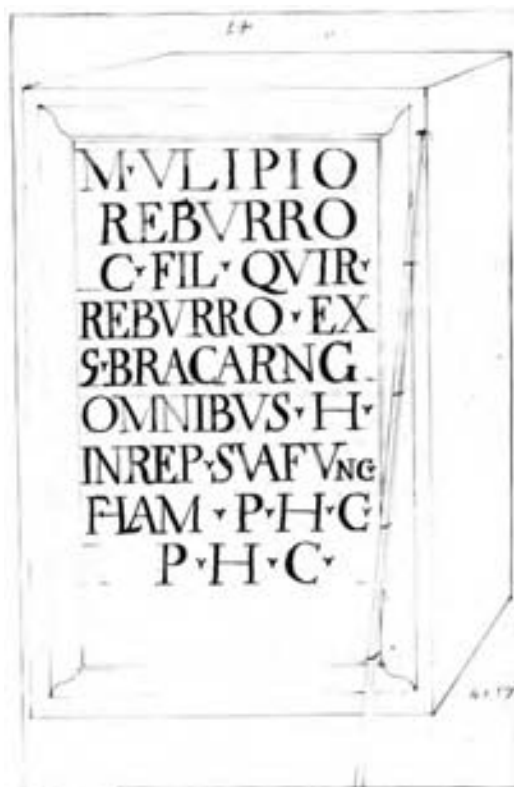 M·VLIPIO
REBVRRO
C·FIL·QVIR·
REBVRRO·EX
S·BRACARNG
OMNIBVS·H·
INREP·SVAFVNG
FLAM·P·H·C
P·H·C·